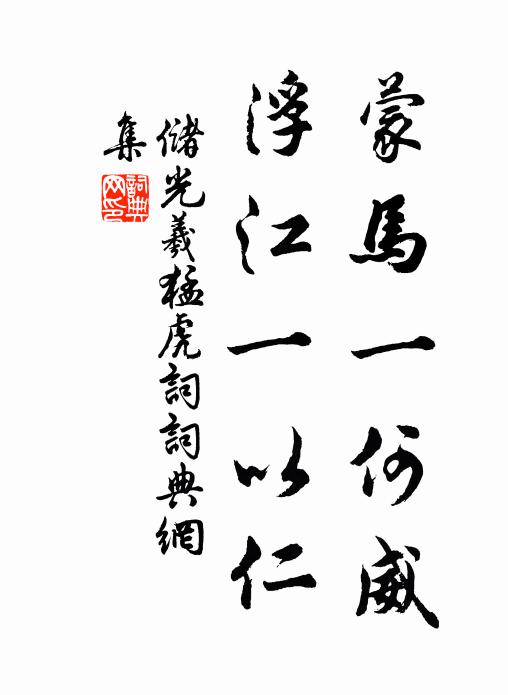 蒙馬一何威
浮江一以仁
儲光羲猛虎詞詞典網
集
詞典网印